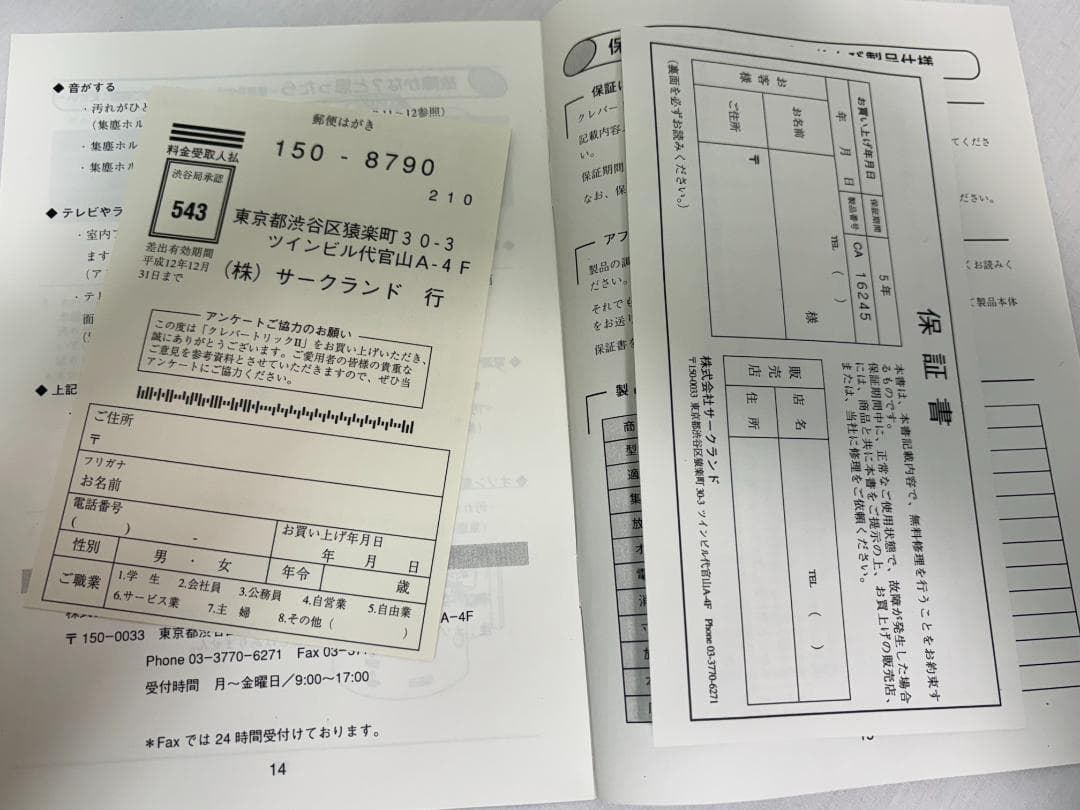 ◆ 音がする
・汚れがひと
11～12参照)
(集塵ホル
・集塵ホル
・集塵ホル
◆ テレビやラ
・室内ア
ます
(ア
・テレ
面
◆ 上記
郵便はがき
料金受取人払
渋谷局承認
543
差出有効期間
平成12年12月
31日まで
150-8790
210
東京都渋谷区猿楽町30-3
ツインビル代官山A-4F
(株) サークランド 行
アンケートご協力のお願い
この度は「クレバートリックⅡ」をお買い上げいただき、
誠にありがとうございます。ご愛用者の皆様の貴重な
ご意見を参考資料とさせていただきますので、ぜひ当
アンケートにご協力ください。
ご住所
〒
フリガナ
お名前
電話番号
( ) -
お買い上げ年月日
年 月 日
性別 男・女 年令 歳
ご職業
1.学 生 2.会社員 3.公務員 4.自営業 5.自由業
6.サービス業 7.主 婦 8.その他 ( )
A-4F
〒150-0033 東京都渋谷
Phone 03-3770-6271 Fax 03-377
受付時間 月～金曜日/9:00～17:00
*Faxでは24時間受付けております。
14
保
製品仕様
保証に
クレバー
記載内容
い。
保証期間
なお、保
アフ
製品の調
ださい。
それでも
をお送り
保証書を
製
商
型
適
集
放
電
消
てくださ
ださい。
くお読みく
て製品本体
保証書
本書は、本書記載内容で、無料修理を行うことをお約束す
るものです。
保証期間中に、正常なご使用状態で、故障が発生した場合
には、商品と共に本書をご提示の上、お買上げの販売店、
または、当社に修理をご依頼ください。
お買い上げ年月日 保証期間 5年
年 月 日 製品番号 CA 16245
お客様
お名前 様
ご住所 〒 TEL ( )
(裏面を必ずお読みください。)
販売店
店名
住所 TEL ( )
株式会社サークランド
〒150-0033 東京都渋谷区猿楽町30-3 ツインビル代官山A-4F Phone 03-3770-6271